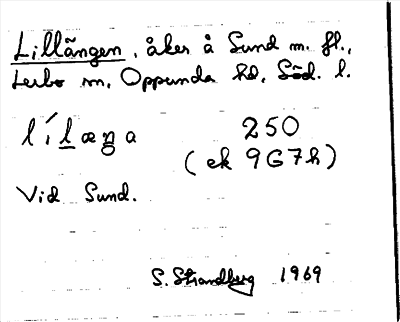 Lillängen, åker å Sund m. fl.,
Lerbo sn, Oppunda hd, Söd. l.
lílæŋa 250
(ek 9G7h)
Vid Sund.
S. Strandberg 1969